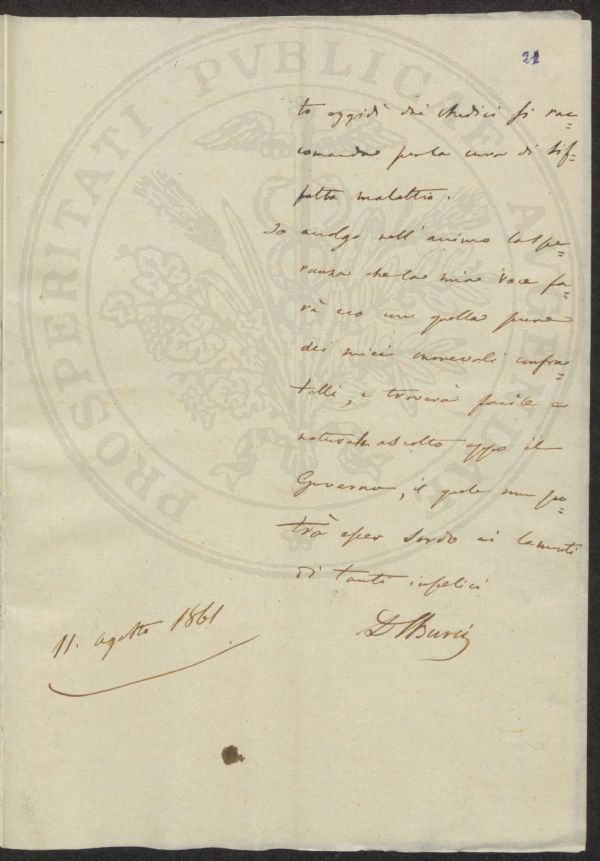 21
to oggidì dai Medici si rac=
comanda per la cura di sif=
fatta malattia.
Io avolgo nell'animo la spe=
ranza che la mia voce fa=
rà eco con quella pure
dei miei onorevoli confra=
telli, e troverà facile e
naturale ascolto appo il
Governo, il quale non po=
trà esser sordo ai lamenti
di tanti infelici
11. agosto 1861
PROSPERITATI PVBLICAE AVGENDAE